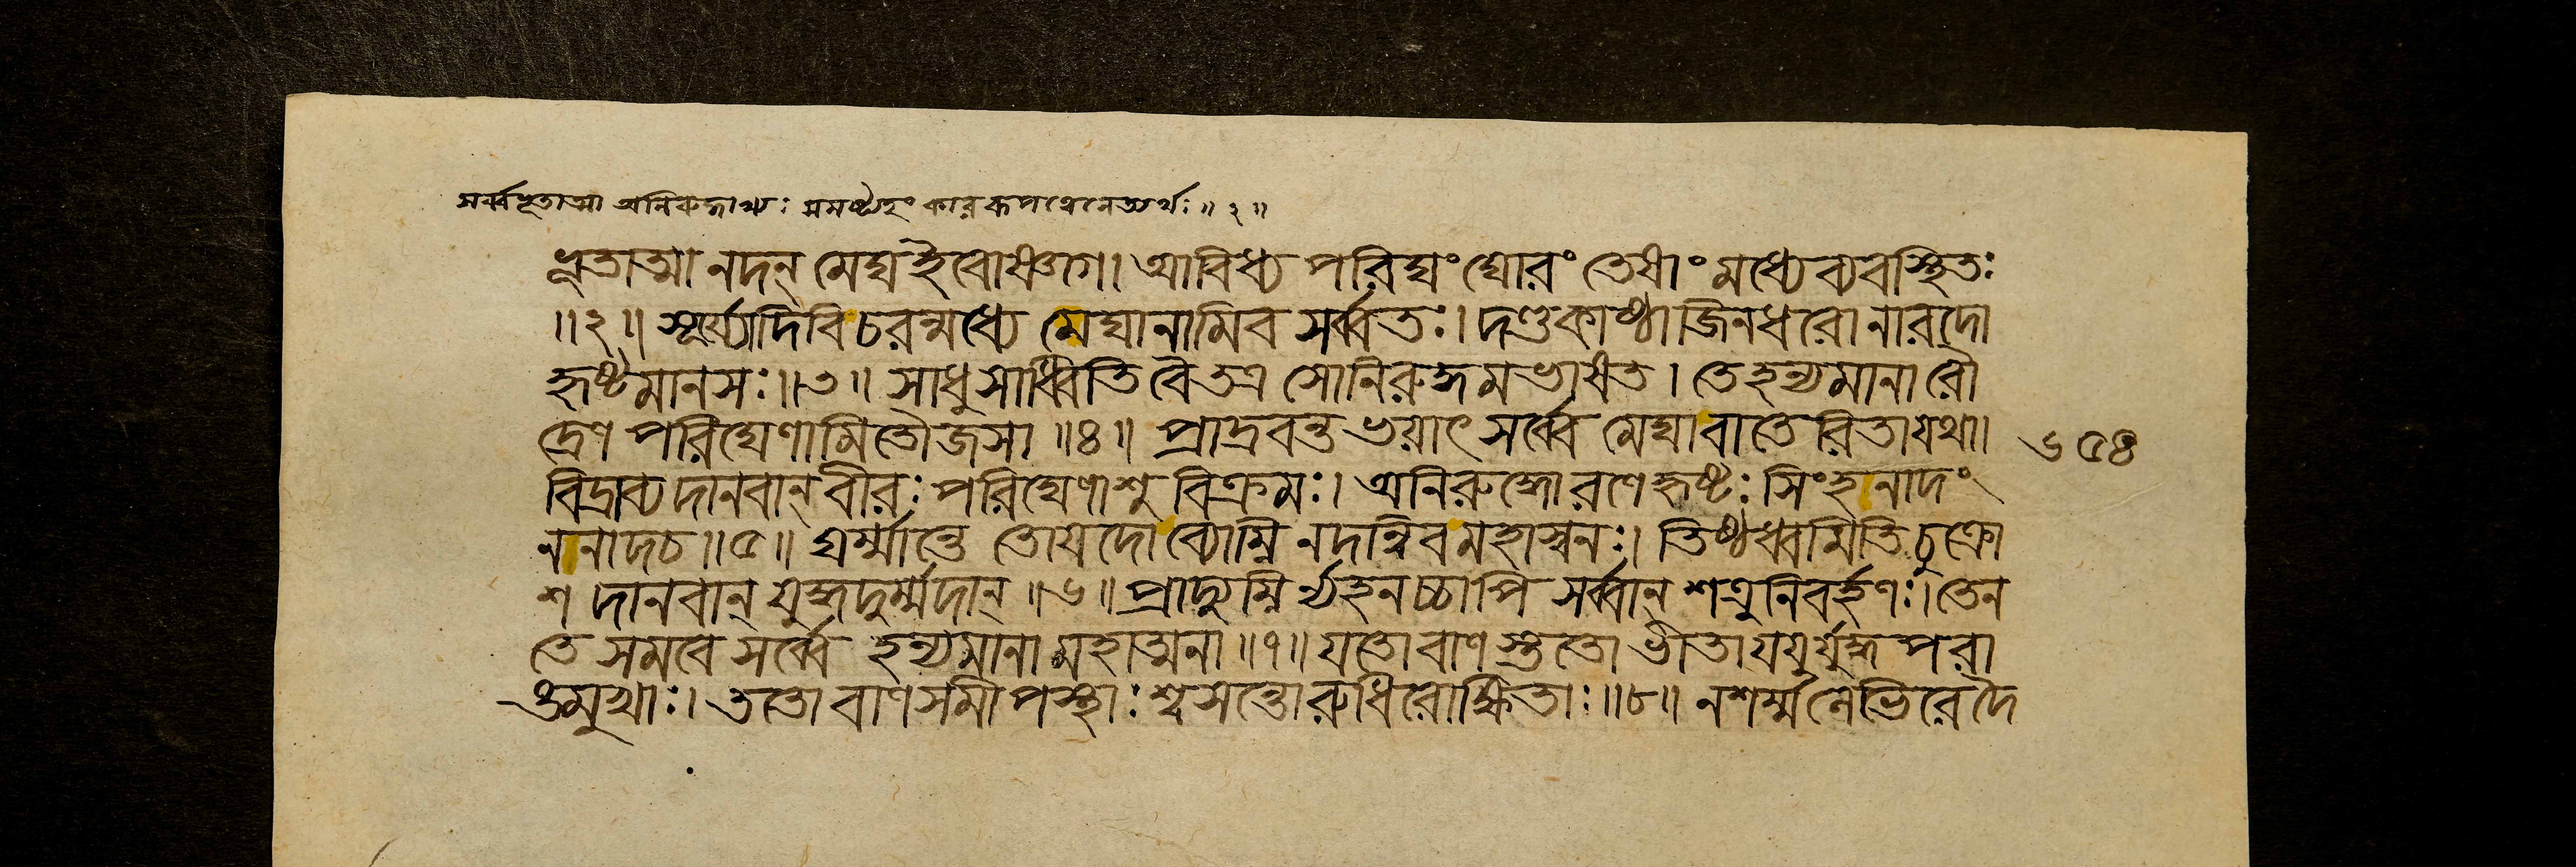 সর্ব্বভূতাত্মা অনিরুদ্ধাখ্যঃ সমষ্ট্যহংকাররূপত্বেনেত্যর্থঃ ॥ ২ ॥
ভূতাত্মা নদন্ মেঘইবোষ্ণগে। আবিধ্য পরিঘং ঘোরং তেষাং মধ্যে ব্যবস্থিতঃ
॥২॥ সূর্য্যোদিবিচরন্মধ্যে মেঘানামিব সর্ব্বতঃ। দণ্ডকাষ্ঠাজিনধরো নারদো
হৃষ্টমানসঃ॥৩॥ সাধুসাধ্বিতি বৈ তত্র সোনিরুদ্ধমভাষত। তে হন্যমানা রৌ
দ্রেণ পরিঘেণামিতৌজসা ॥৪॥ প্রাদ্রবন্ত ভয়াৎ সর্ব্বে মেঘা বাতেরিতা যথা।
৬৫৪
বিদ্রাব্য দানবান্ বীরঃ পরিঘেণাশু বিক্রমঃ। অনিরুদ্ধো রণে হৃষ্টঃ সিংহনাদং
ননাদ চ ॥৫॥ ঘর্ম্মান্তে তোয়দো ব্যোম্নি নদন্নিব মহাস্বনঃ। তিষ্ঠধ্বমিতি চুক্রো
শ দানবান্ যুদ্ধদুর্ম্মদান্ ॥৬॥ প্রাদ্যুম্নির্ব্যহনচ্চাপি সর্ব্বান্ শত্রুনিবর্হণঃ। তেন
তে সমরে সর্ব্বে হন্যমানা মহাত্মনা ॥৭॥ যতো বাণস্ততো ভীতা যযুর্যুদ্ধপরা
ঙমুখাঃ। ততো বাণসমীপস্থাঃ শ্বসন্তো রুধিরোক্ষিতাঃ ॥৮॥ ন শর্ম্ম লেভিরে দৈ